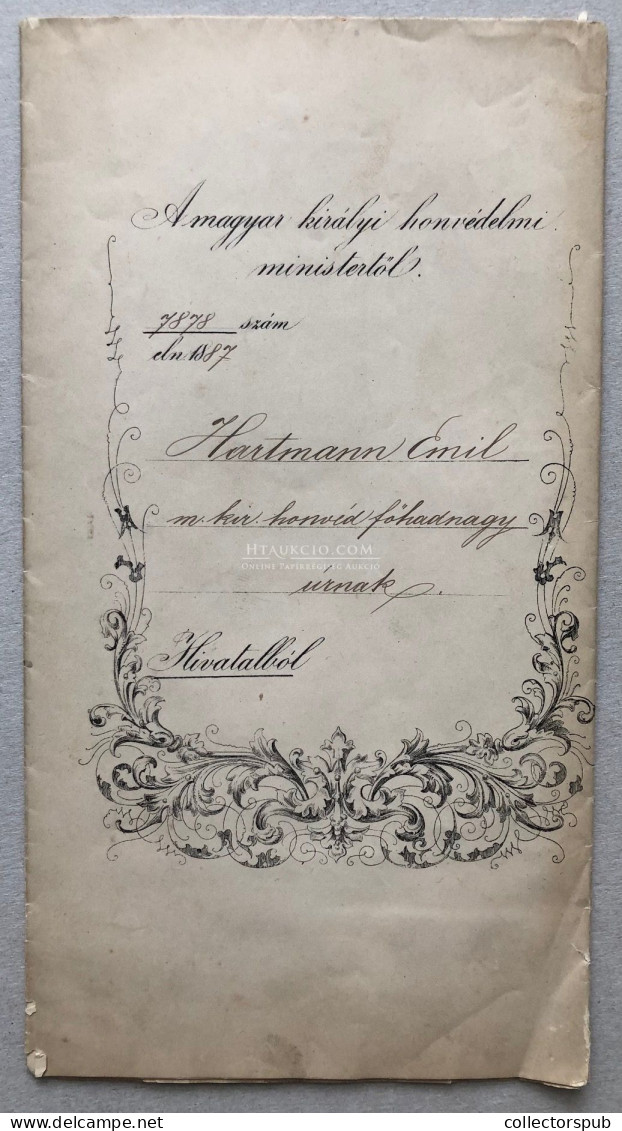 A magyar királyi honvédelmi
ministertől.
7878 szám
eln 1887
Hartmann Emil
m. kir. honvéd főhadnagy
urnak.
HTAUKCIO.COM
ONLINE PAPÍRRÉGISÉG AUKCIÓ
Hivatalból
collectorspub